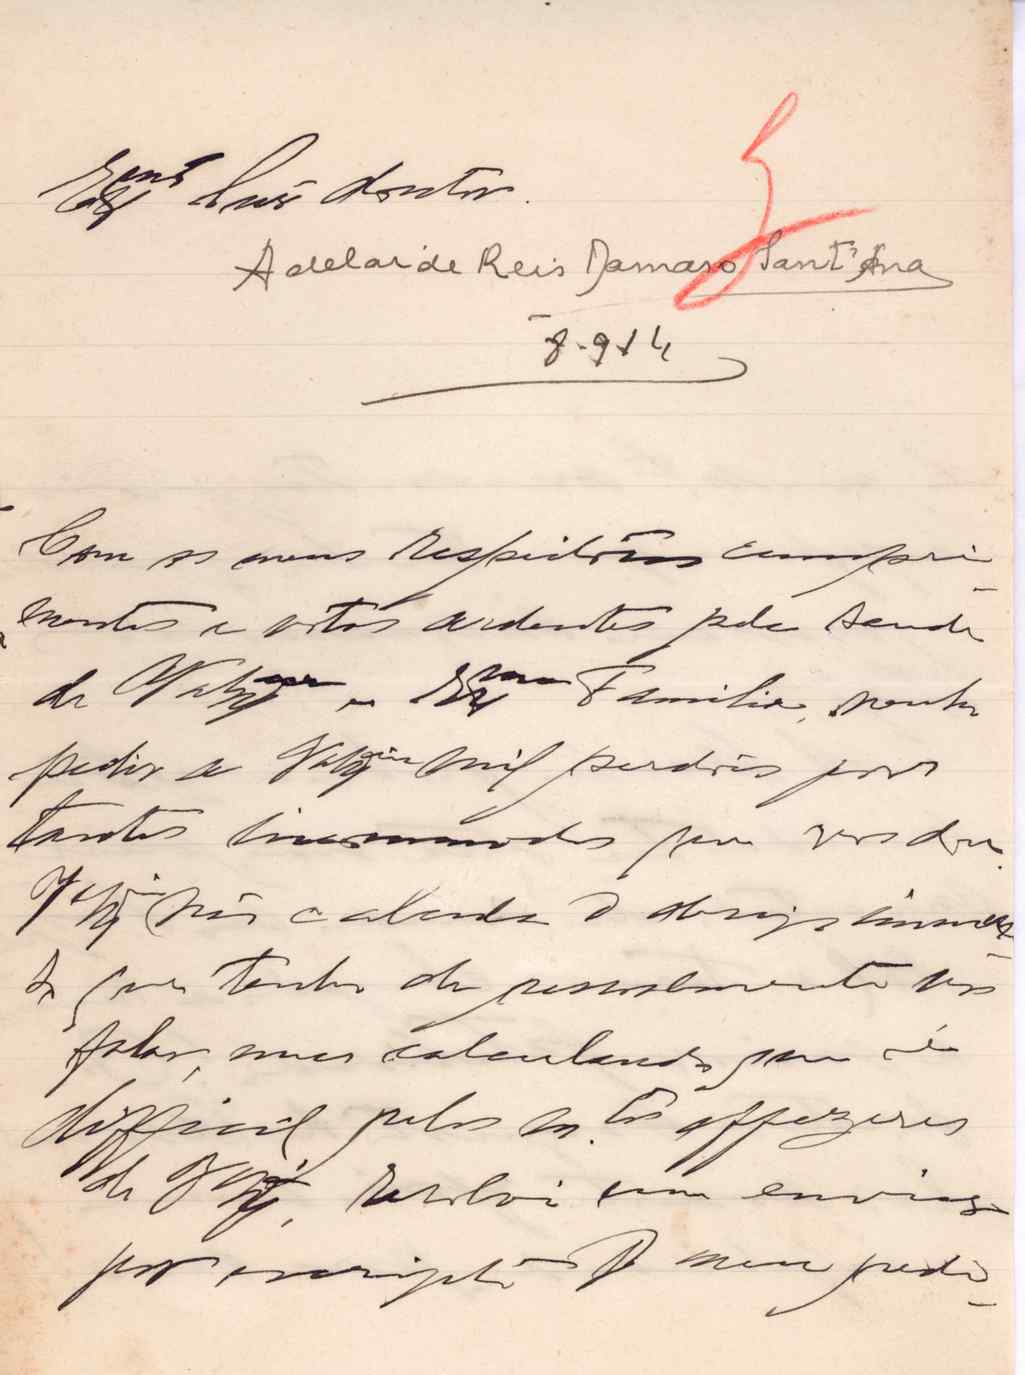 Exmo Snr doutor.
Adelaide Reis Damaso Sant'Ana
8-914
Com os meus respeitosos cumpri-
mentos e votos ardentes pela saude
de V. Exa e Exma Familia, venho
pedir a V. Exa mil perdões por
tantos incommodos que vos dou.
V. Exa não calcula o desejo immen-
so que tenho de pessoalmente vos
falar, mas calculando que é
difficil pelos m.tos affazeres
de V. Exa, resolvi em enviar
por escripto o meu pedi-